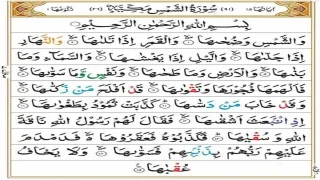 سُوۡرَةُ الشَّمۡسِ مَكِّيَّةٌ
بِسۡمِ اللهِ الرَّحۡمٰنِ الرَّحِيۡمِ
وَالشَّمۡسِ وَضُحٰىهَا ۞ وَالۡقَمَرِ اِذَا تَلٰىهَا ۞ وَالنَّهَارِ
اِذَا جَلّٰىهَا ۞ وَالَّيۡلِ اِذَا يَغۡشٰىهَا ۞ وَالسَّمَآءِ وَمَا
بَنٰىهَا ۞ وَالۡاَرۡضِ وَمَا طَحٰىهَا ۞ وَنَفۡسٍ وَّمَا سَوّٰىهَا ۞
فَاَلۡهَمَهَا فُجُوۡرَهَا وَتَقۡوٰىهَا ۞ قَدۡ اَفۡلَحَ مَنۡ زَكّٰىهَا ۞
وَقَدۡ خَابَ مَنۡ دَسّٰىهَا ۞ كَذَّبَتۡ ثَمُوۡدُ بِطَغۡوٰىهَآ ۞
اِذِ انۡۢبَعَثَ اَشۡقٰىهَا ۞ فَقَالَ لَهُمۡ رَسُوۡلُ اللهِ نَاقَةَ
اللهِ وَسُقۡيٰهَا ۞ فَكَذَّبُوۡهُ فَعَقَرُوۡهَا ۞ فَدَمۡدَمَ
عَلَيۡهِمۡ رَبُّهُمۡ بِذَنۡۢبِهِمۡ فَسَوّٰىهَا ۞ وَلَا يَخَافُ
عُقۡبٰهَا ۞